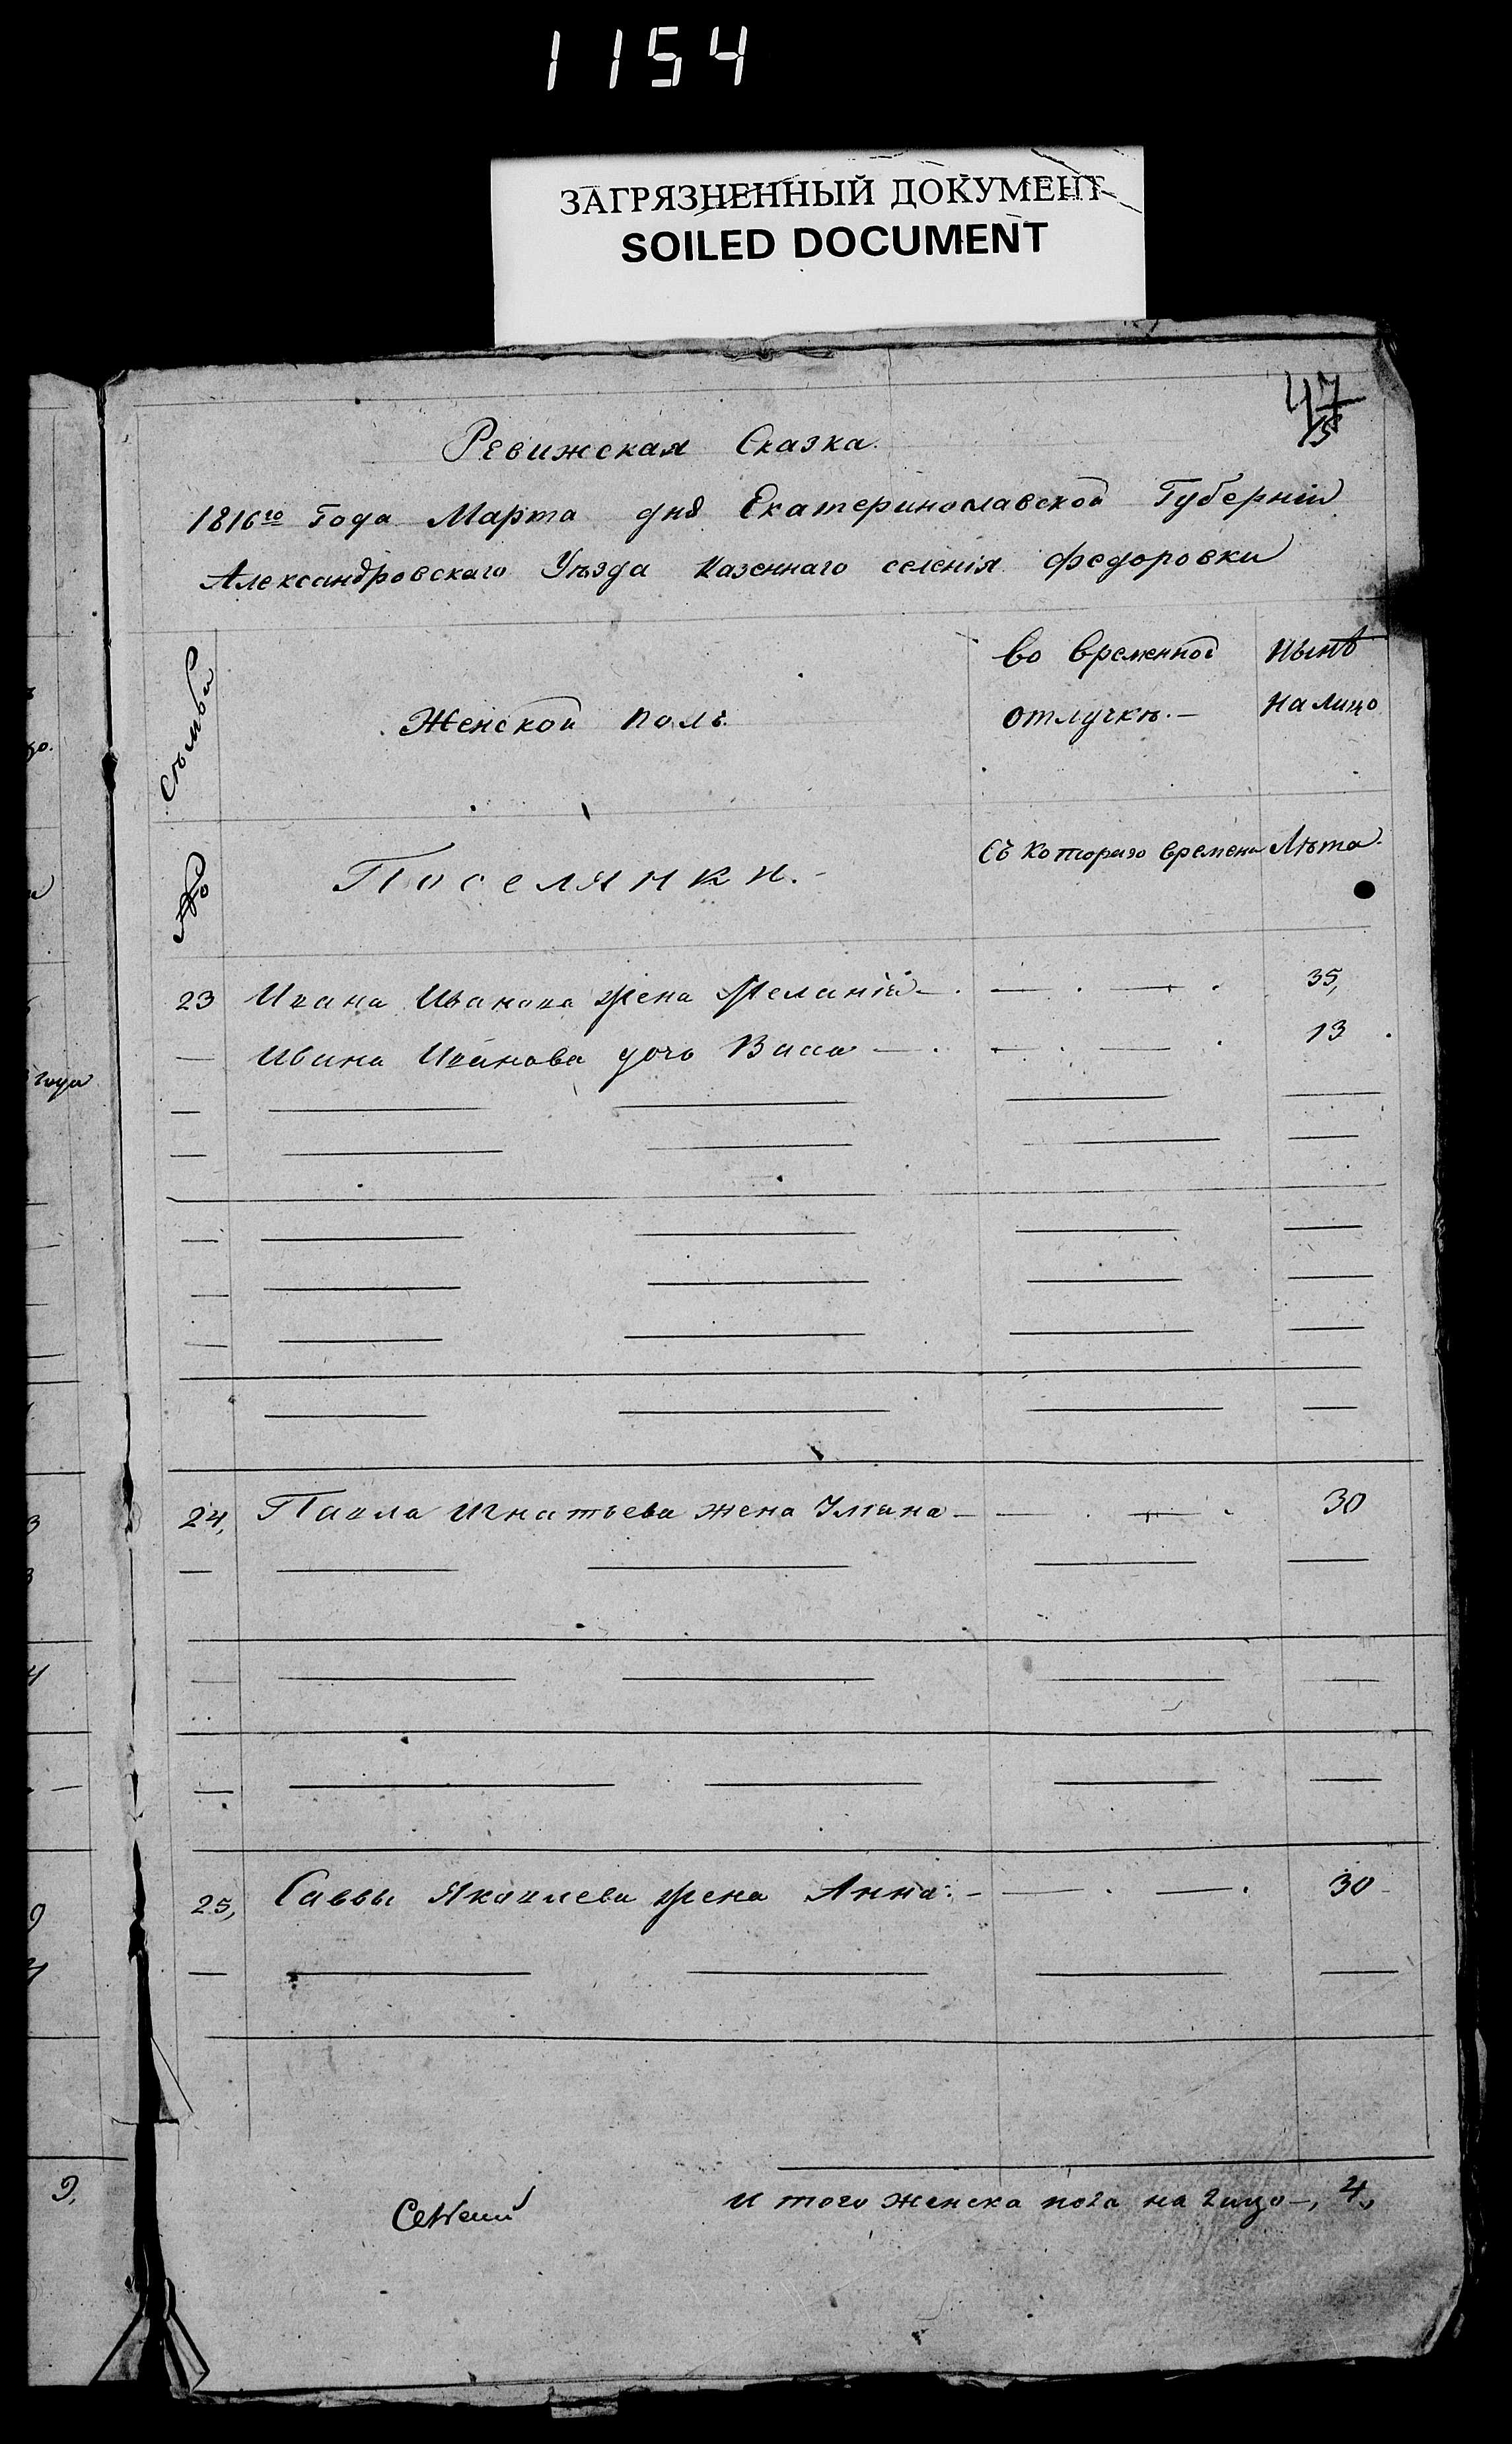 1154
ЗАГРЯЗНЕННЫЙ ДОКУМЕНТ
SOILED DOCUMENT
47
15
Ревижская Сказка.
1816го Года Марта дня Екатеринославской Губерніи
Александровскаго Уѣзда казеннаго селенія Федоровки
Семьи
Женской полъ.
во временной
отлучкѣ.—
нынѣ
на лицо
№
Поселянки.—
Съ котораго времени
Лѣта.
23 Ивана Иванова жена Меланія —. — . — . 35,
— Ивана Иванова дочь Васса — . — . — . 13
24, Павла Игнатьева жена Уліана — — . — . 30
25, Саввы Яковлева жена Анна: — — . — . 30
Итого женска пола на лицо —, 4,
года
9,